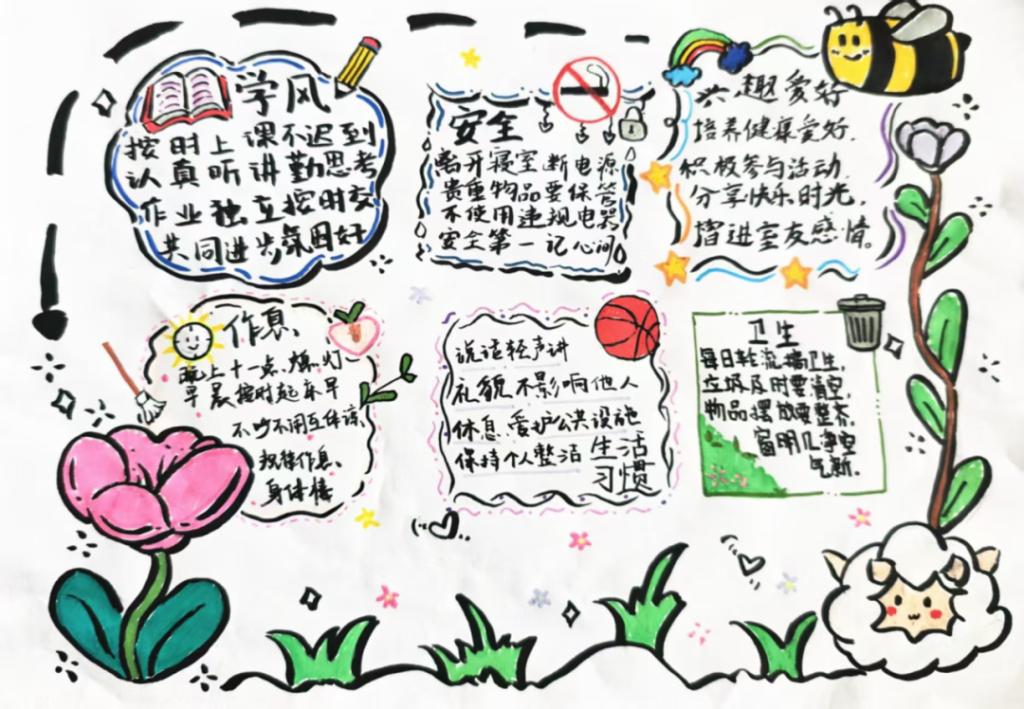 学风
按时上课不迟到
认真听讲勤思考
作业独立按时交
共同进步氛围好
安全
离开寝室断电源
贵重物品要保管
不使用违规电器
安全第一记心间
兴趣爱好
培养健康爱好.
积极参与活动.
分享快乐时光,
增进室友感情。
作息、
晚上十一点,熄灯
早晨按时起床早
不吵不闹互体谅、
规律作息、
身体棒
说话轻声讲
礼貌不影响他人
休息、爱护公共设施
保持个人整洁
生活
习惯
卫生
每日轮流搞卫生,
垃圾及时要清空,
物品摆放要整齐,
窗明几净空
气新.